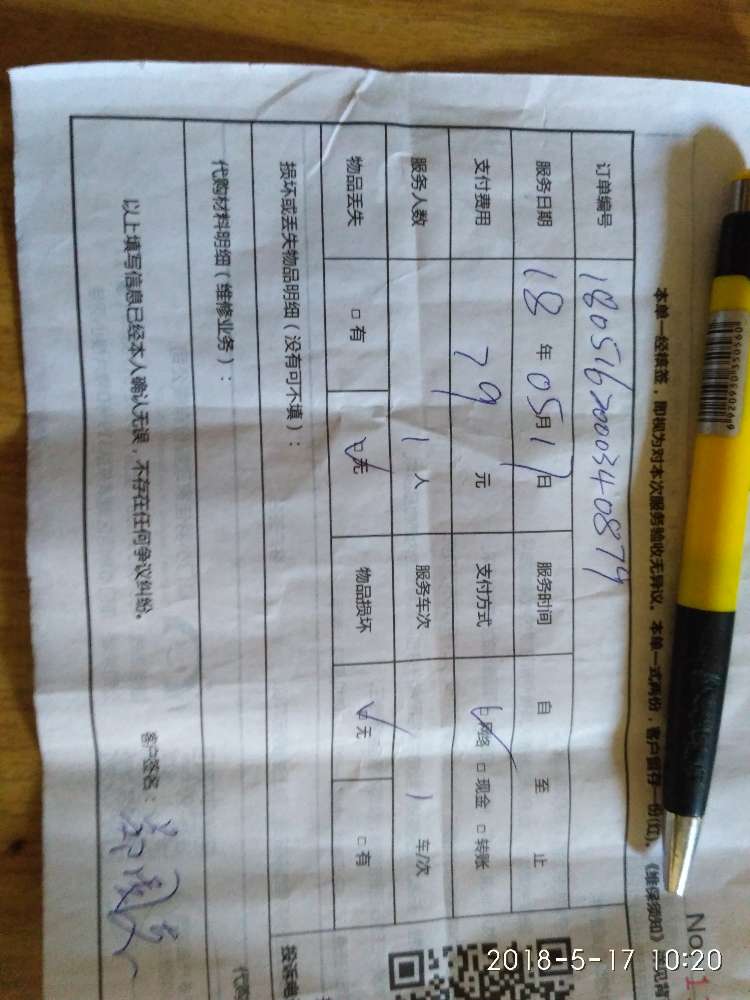 No 1
本单一经核签，即视为对本次服务验收无异议。本单一式两份，客户留存一份(红)。《维保须知》
订单编号 180516200034-0879
服务日期 18 年 05 月 17 日 服务时间 自 至 止
支付费用 79 元 支付方式 ☑ 网络 □ 现金 □ 转账
服务人数 1 人 服务车次 1 车/次
物品丢失 □ 有 ☑ 无 物品损坏 ☑ 无 □ 有
损坏或丢失物品明细（没有可不填）：
代购材料明细（维修业务）：
以上填写信息已经本人确认无误，不存在任何争议纠纷。
客户签名：
投诉电
代购
2018-5-17 10:20